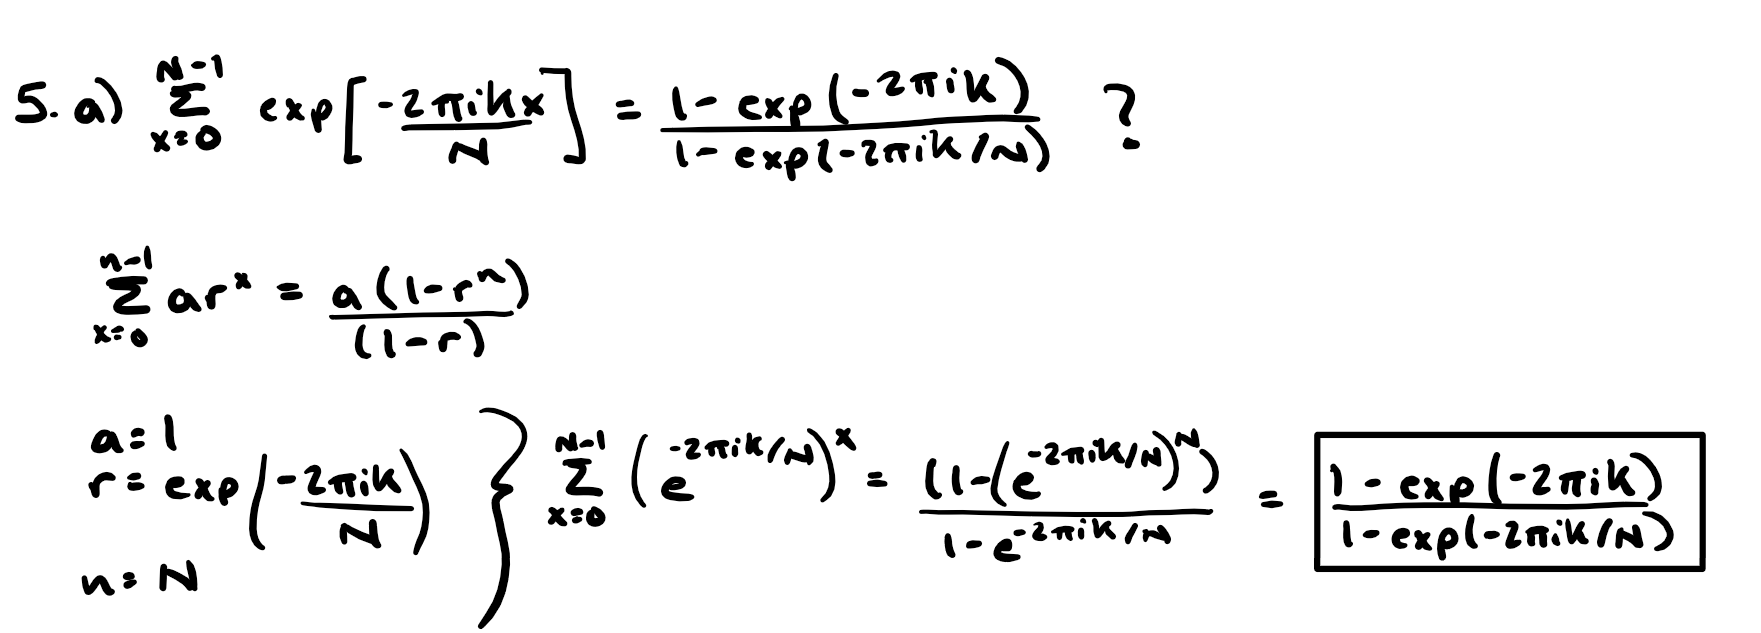 5. a) \sum_{x=0}^{N-1} exp[\frac{-2πikx}{N}] = \frac{1 - exp(-2πik)}{1 - exp(-2πik/N)} ?
\sum_{x=0}^{n-1} ar^x = \frac{a(1-r^n)}{(1-r)}
a=1
r= exp(\frac{-2πik}{N})
n= N
} \sum_{x=0}^{N-1} (e^{-2πik/N})^x = \frac{(1-(e^{-2πik/N})^N)}{1-e^{-2πik/N}} = \frac{1 - exp(-2πik)}{1 - exp(-2πik/N)}